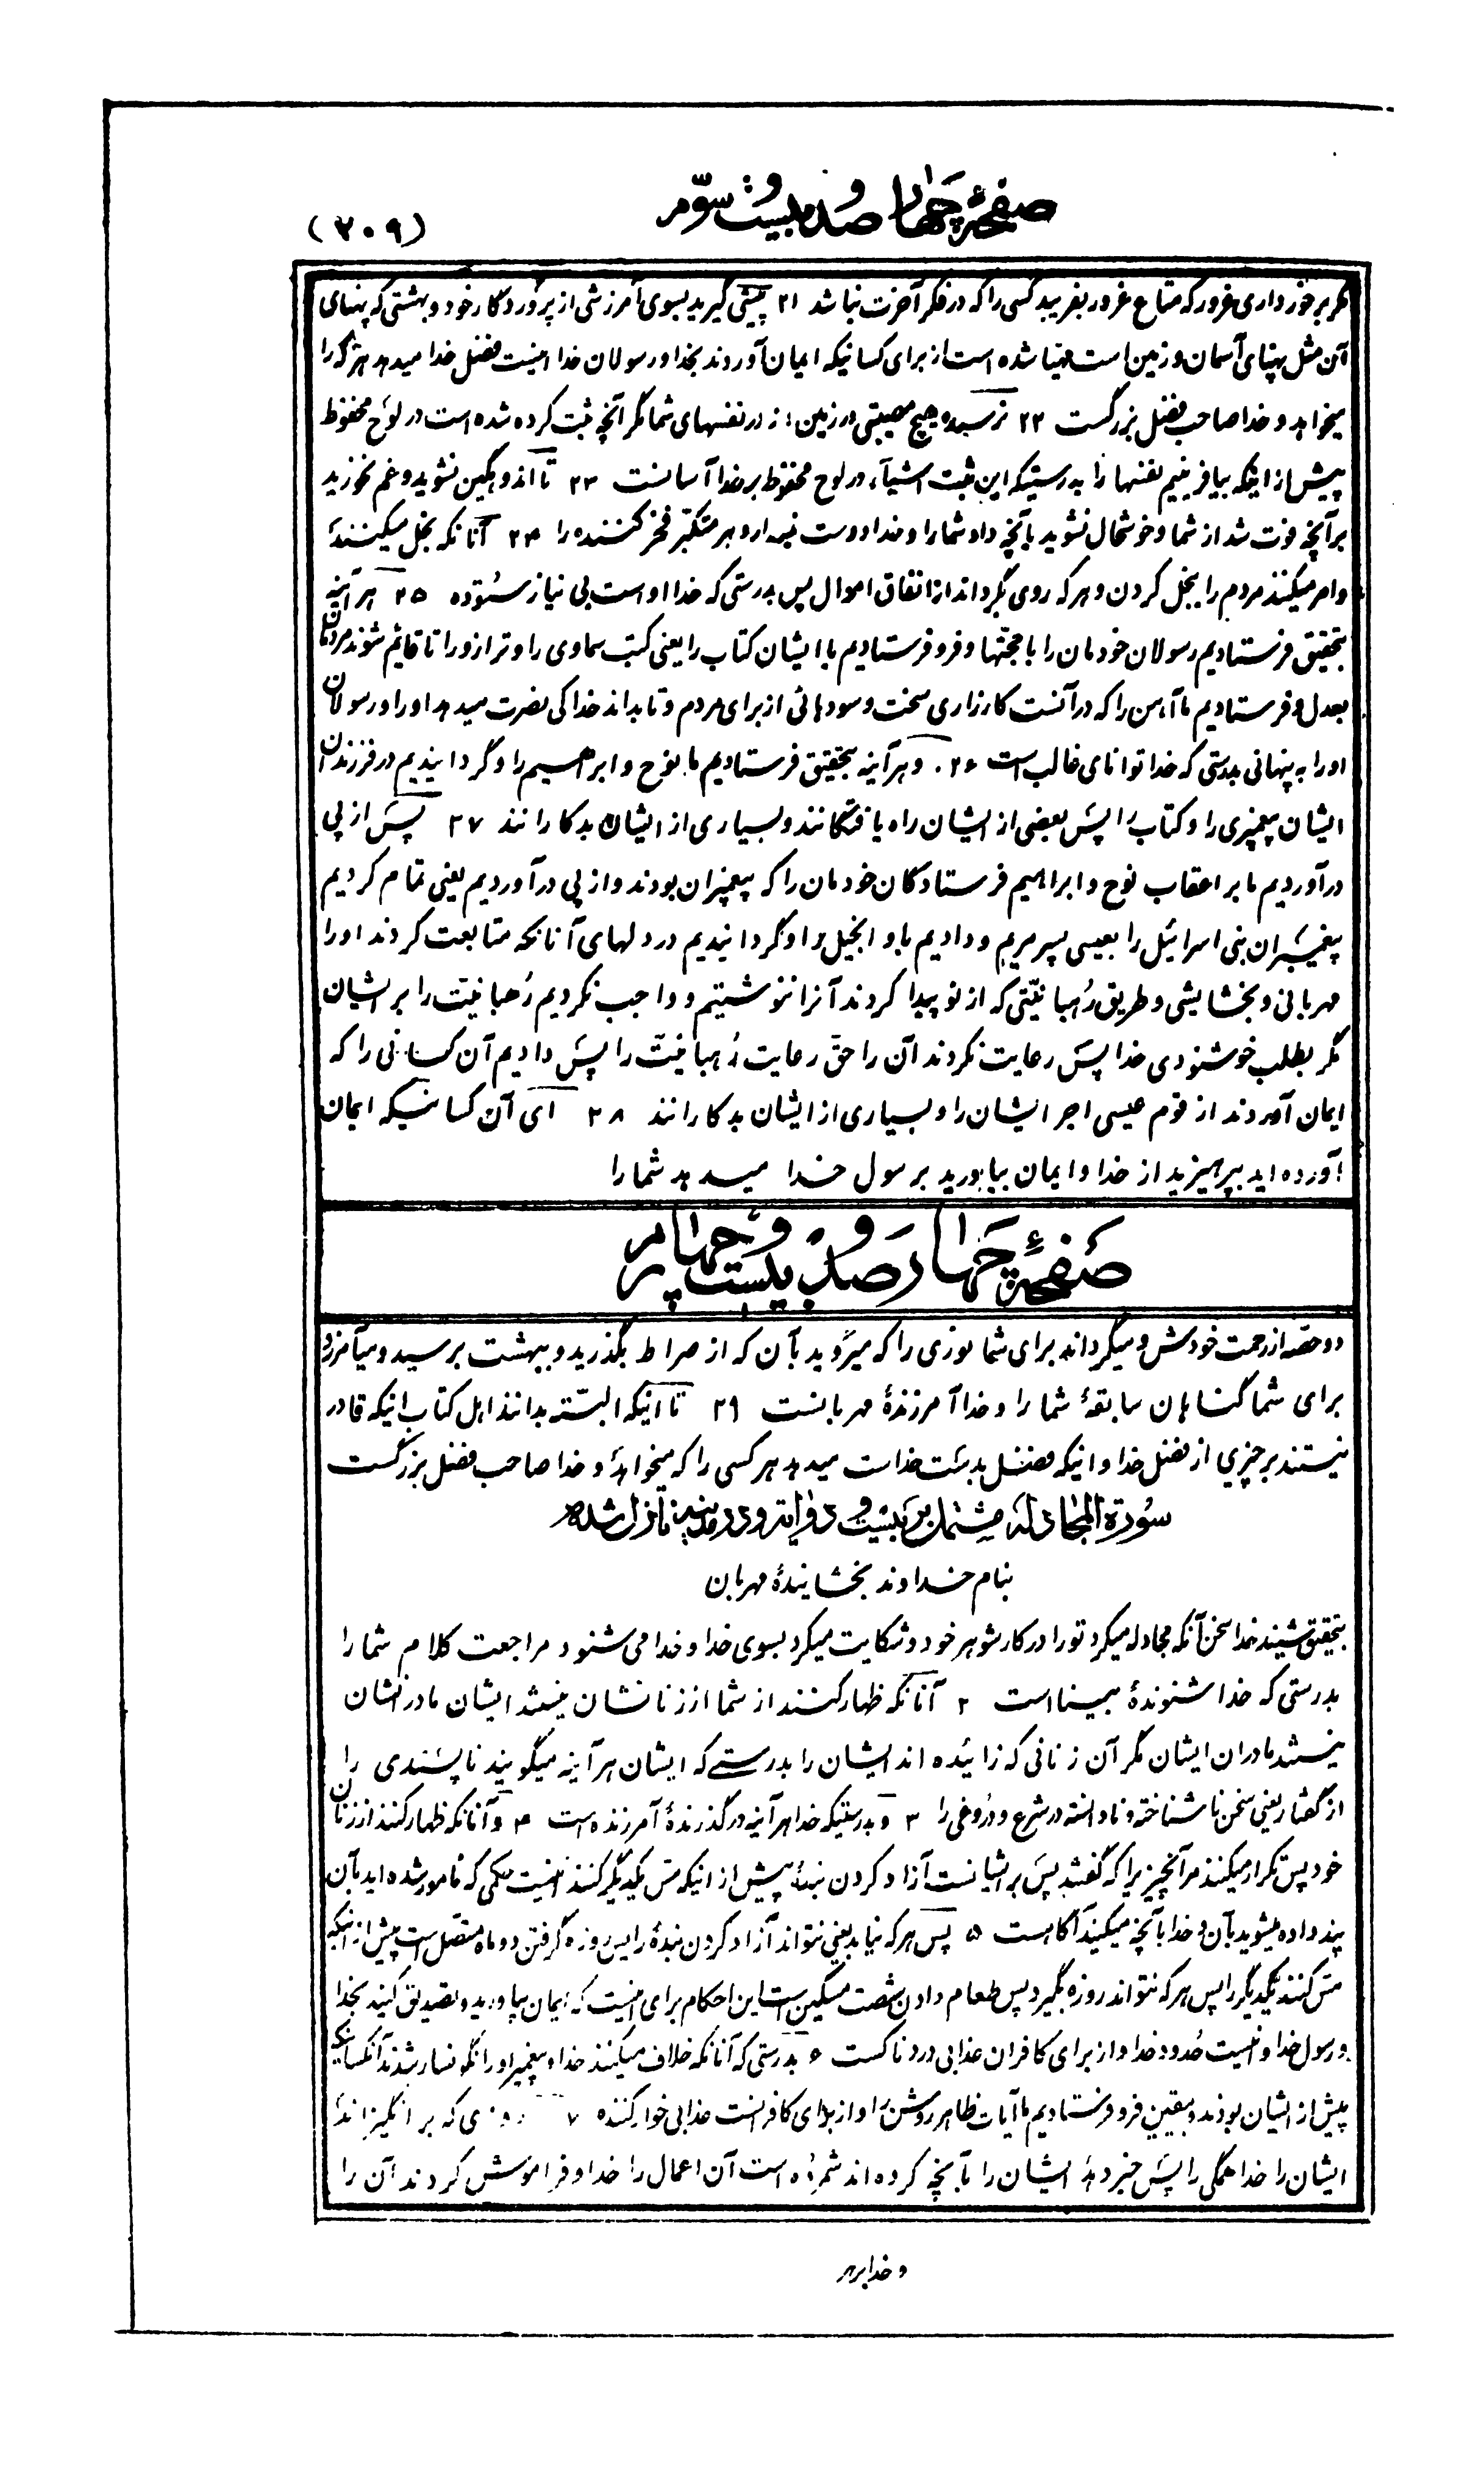 صفحهٔ چهار صد و بیست و سوّم
(۳۰۹)
مگر برخورداری غرور که متاع غرور بفریبد کسی را که در فکر آخرت نباشد ۲۱ پیشی گیرید بسوی آمرزشی از پروردگار خود و بهشتی که پهنای
آن مثل پهنای آسمان و زمین است مهیا شده است از برای کسانیکه ایمان آوردند بخدا و رسولان خدا اینست فضل خدا میدهد هر که را
میخواهد و خدا صاحب فضل بزرگست ۲۲ نرسیده هیچ مصیبتی در زمین و نه در نفسهای شما مگر آنچه ثبت کرده شده است در لوح محفوظ
پیش از اینکه بیافرینیم نفسها را بدرستیکه این ثبت اشیآء در لوح محفوظ بر خدا آسانست ۲۳ تا اندوهگین نشوید و غم نخورید
بر آنچه فوت شد از شما و خوشحال نشوید بآنچه داد شما را و خدا دوست نمیدارد هر متکبّر فخر کننده را ۲۴ آنانکه بخل میکنند
و امر میکنند مردم را ببخل کردن و هر که روی بگرداند از انفاق اموال پس بدرستی که خدا او است بی نیاز ستوده ۲۵ هر آینه
بتحقیق فرستادیم رسولان خودمان را با حجّتها و فرو فرستادیم با ایشان کتاب را یعنی کتب سماوی را و ترازو را تا قائم شوند مردمان
بعدل و فرستادیم ما آهن را که در آنست کارزاری سخت و سودهائی از برای مردم و تا بداند خدا کی نصرت میدهد او را و رسولان
او را به پنهانی بدرستی که خدا توانای غالب است ۲۶ و هر آینه بتحقیق فرستادیم ما نوح و ابراهیم را و گردانیدیم در فرزندان
ایشان پیغمبری را و کتاب را پس بعضی از ایشان راه یافتگانند و بسیاری از ایشان بدکارانند ۲۷ پس از پی
درآوردیم ما بر اعقاب نوح و ابراهیم فرستادگان خودمان را که پیغمبران بودند و از پی درآوردیم یعنی تمام کردیم
پیغمبران بنی اسرائیل را بعیسی پسر مریم و دادیم باو انجیل را و گردانیدیم در دلهای آنانکه متابعت کردند او را
مهربانی و بخشایشی و طریق رهبانیّتی که از نو پیدا کردند آنرا ننوشتیم و واجب نکردیم رهبانیّت را بر ایشان
مگر بطلب خوشنودی خدا پس رعایت نکردند آن را حقّ رعایت رهبانیّت را پس دادیم آن کسانی را که
ایمان آوردند از قوم عیسی اجر ایشان را و بسیاری از ایشان بدکارانند ۲۸ ای آن کسانیکه ایمان
آورده اید بپرهیزید از خدا و ایمان بیاورید برسول خدا میدهد شما را
صفحهٔ چهار صد و بیست و چهارم
دو حصّه از رحمت خودش و میگرداند برای شما نوری را که میروید بآن که از صراط بگذرید و ببهشت برسید و میآمرزد
برای شما گناهان سابقهٔ شما را و خدا آمرزندهٔ مهربانست ۲۹ تا اینکه البتّه بدانند اهل کتاب اینکه قادر
نیستند بر چیزی از فضل خدا و اینکه فضل بدست خداست میدهد هر کسی را که میخواهد و خدا صاحب فضل بزرگست
سورة المجادله مشتمل بر بیست و دو آیه و در مدینه نازل شده
بنام خداوند بخشایندهٔ مهربان
بتحقیق شنید خدا سخن آنکه مجادله میکرد تو را در کار شوهر خود و شکایت میکرد بسوی خدا و خدا می شنود مراجعت کلام شما را
بدرستی که خدا شنوندهٔ بینا است ۲ آنانکه ظهار کنند از شما از زنانشان نیستند ایشان مادرانشان
نیستند مادران ایشان مگر آن زنانی که زائیده اند ایشان را بدرستے که ایشان هر آینه میگویند ناپسندی را
از گفتار یعنی سخن ناشناخته و نادانسته در شرع و دروغی را ۳ و بدرستیکه خدا هر آینه درگذرندهٔ آمرزنده است ۴ و آنانکه ظهار کنند از زنان
خود پس تکرار میکنند مر آنچیزیرا که گفتند پس بر ایشانست آزاد کردن بندهٔ پیش از اینکه مسّ یکدیگر کنند اینست حکمی که مامور شده اید بآن
پند داده میشوید بآن و خدا بآنچه میکنید آگاست ۵ پس هر که نیابد یعنی نتواند آزاد کردن بندهٔ را پس روزه گرفتن دو ماه متصل است پیش از اینکه
مسّ کنند یکدیگر را پس هر که نتواند روزه بگیرد پس طعام دادن شصت مسکین است این احکام برای اینست که ایمان بیاورید و تصدیق کنید بخدا
و رسول خدا و اینست حدود خدا و از برای کافران عذابی دردناکست ۶ بدرستی که آنانکه خلاف میکنند خدا و پیغمبر او را نگونسار شدند آنکسانیکه
پیش از ایشان بودند و بیقین فرو فرستادیم ما آیات ظاهر روشن را و از برای کافرانست عذابی خوار کننده ۷ روزی که بر انگیزاند
ایشان را خدا همگی را پس خبر دهد ایشان را بآنچه کرده اند شمرده است آن اعمال را خدا و فراموش کردند آن را
و خدا بر هر